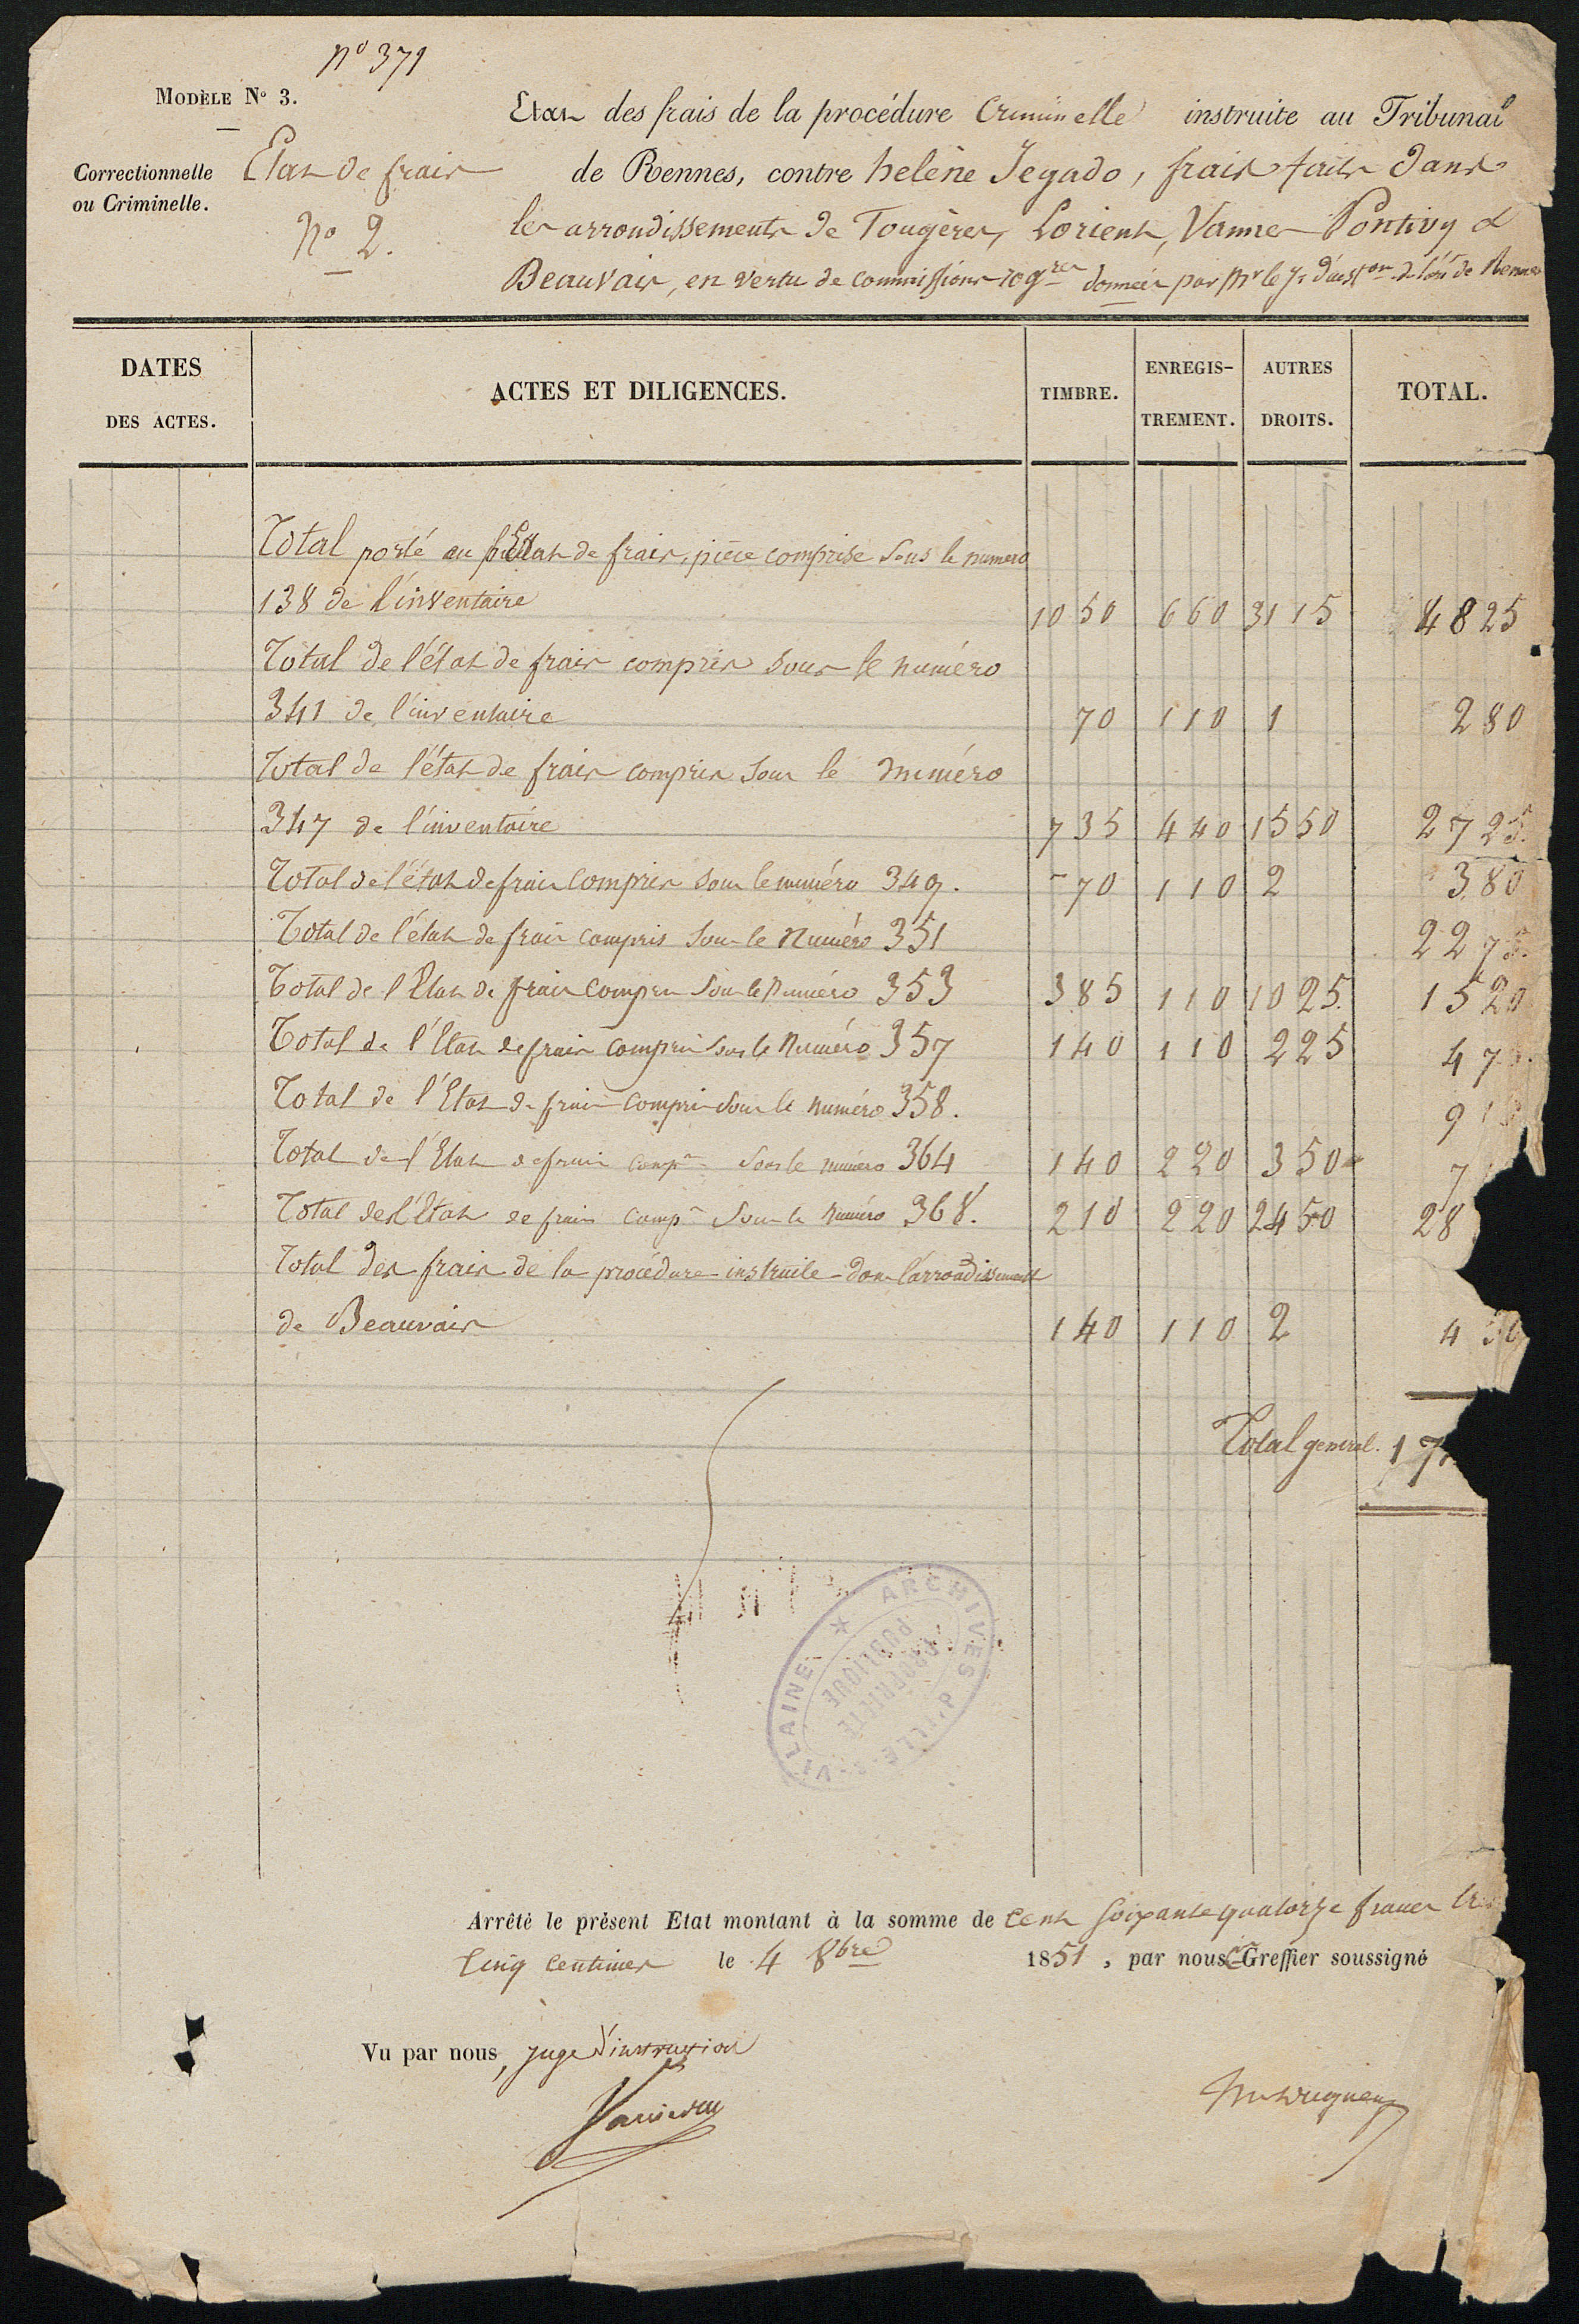 nº 371
MODÈLE Nº 3.
Correctionnelle
ou Criminelle.
Etat de frais
nº 2.
Etat des frais de la procédure Criminelle instruite au Tribunal
de Rennes, contre helène Jegado, frais faits dans
les arrondissements de Fougères, Lorient, Vannes Pontivy &
Beauvais, en vertu de commissions rogres données par Mr le de Rennes
DATES
DES ACTES.
ACTES ET DILIGENCES.
TIMBRE.
ENREGIS-
TREMENT.
AUTRES
DROITS.
TOTAL.
Total porté au Etat de frais, pièce comprise sous le numero
138 de l'inventaire 10 50 6 60 31 15 48 25
Total de l'état de frais compris sous le numéro
341 de l'inventaire 70 1 10 1 2 80
Total de l'état de frais compris sous le numéro
347 de l'inventaire 7 35 4 40 15 50 27 25
Total de l'état de frais compris sous le numéro 349. 70 1 10 2 3 80
Total de l'état de frais compris sous le Numéro 351 22 75
Total de l'Etat de frais compris sous le Numéro 353 3 85 1 10 10 25 15 20
Total de l'Etat de frais compris sous le Numéro 357 1 40 1 10 2 25 4 7
Total de l'Etat de frais compris sous le numéro 358. 9
Total de l'Etat de frais comp. sous le numéro 364 1 40 2 20 3 50 7
Total de l'Etat de frais comp. sous le Numéro 368. 2 10 2 20 24 50 28
Total des frais de la procédure instruite dans l'arrondissement
de Beauvais 1 40 1 10 2 4 50
Total general. 17
ARCHIVES D'ILLE-&-VILAINE
PROPRIÉTÉ
PUBLIQUE
Arrêté le présent Etat montant à la somme de Cent soixante quatorze francs
Cinq centimes le 4 8bre 1851, par nous Greffier soussigné
Vu par nous, juge d'instruction